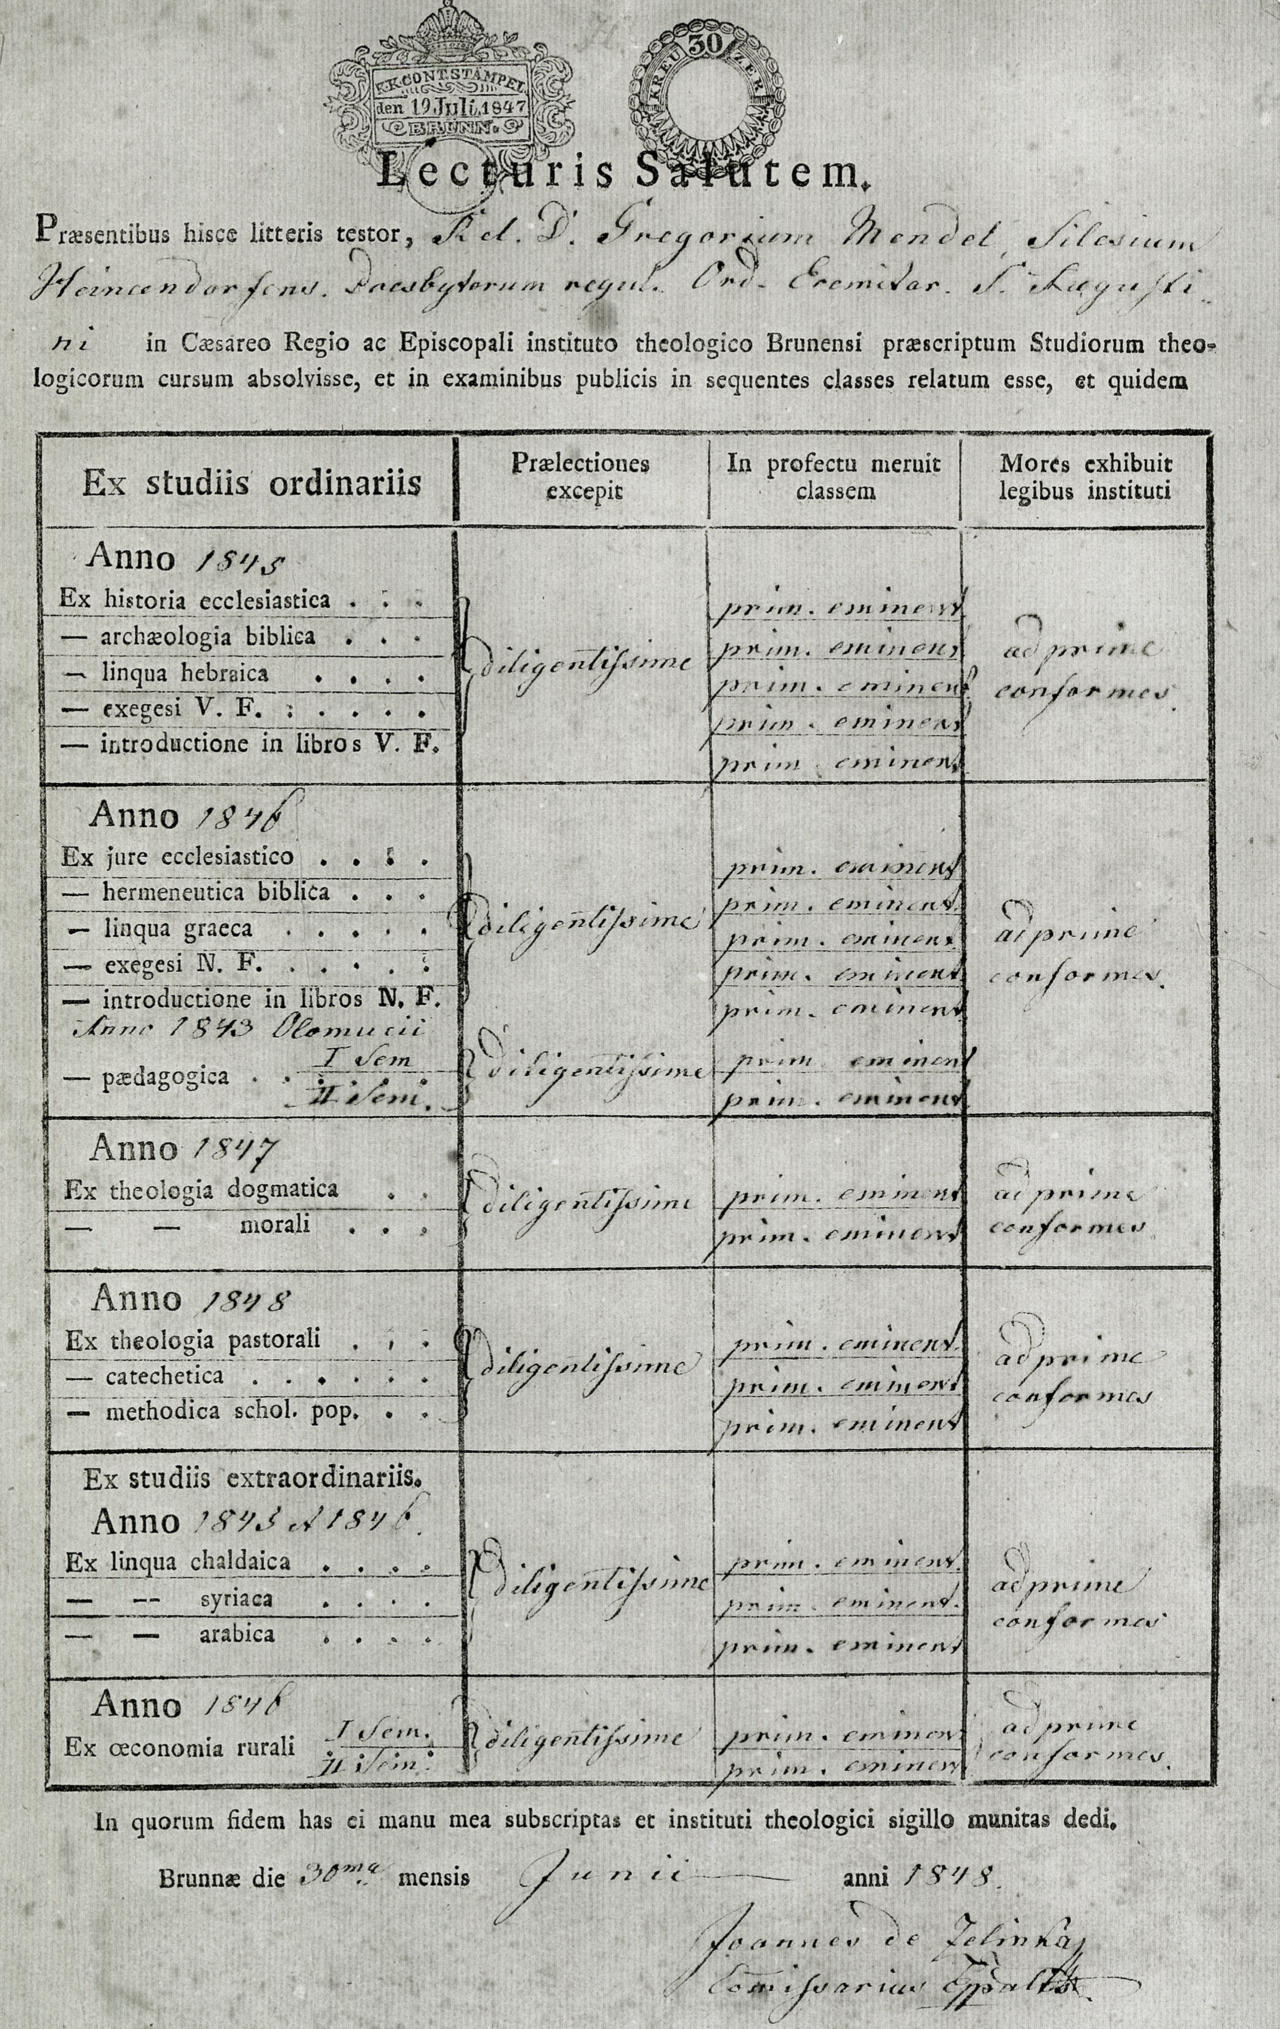 K.K. CONT. STÄMPEL
den 19 Juli. 1847
BRÜNN.
30 KREUZER
Lecturis Salutem.
Præsentibus hisce litteris testor, Rel. D. Gregorium Mendel, Silesium
Heincendorfens. Presbyterum regul. Ord. Eremitar. S. Augusti-
ni in Cæsareo Regio ac Episcopali instituto theologico Brunensi præscriptum Studiorum theo-
logicorum cursum absolvisse, et in examinibus publicis in sequentes classes relatum esse, et quidem
Ex studiis ordinariis
Prælectiones excepit
In profectu meruit classem
Mores exhibuit legibus instituti
Anno 1845
Ex historia ecclesiastica . . . prim. eminent
— archæologia biblica . . . prim. eminent
— lingua hebraica . . . . diligentissime prim. eminent adprime conformes.
— exegesi V. F. : . . . . prim. eminent
— introductione in libros V. F. prim. eminent
Anno 1846
Ex jure ecclesiastico . . . . prim. eminent
— hermeneutica biblica . . . prim. eminent.
— lingua graeca . . . . . diligentissime prim. eminent. adprime conformes.
— exegesi N. F. . . . . . prim. eminent
— introductione in libros N. F. prim. eminent
Anno 1843 Olomucii
— pædagogica . . I Sem diligentissime prim. eminent
II Sem. prim. eminent
Anno 1847
Ex theologia dogmatica . . diligentissime prim. eminent adprime conformes
— — morali . . . prim. eminent
Anno 1848
Ex theologia pastorali . . . prim. eminent.
— catechetica . . . . . . diligentissime prim. eminent adprime conformes
— methodica schol. pop. . . prim. eminent
Ex studiis extraordinariis.
Anno 1845 et 1846.
Ex lingua chaldaica . . . . prim. eminent.
— — syriaca . . . . diligentissime prim. eminent. adprime conformes
— — arabica . . . . prim. eminent
Anno 1846
Ex œconomia rurali I Sem. diligentissime prim. eminent adprime conformes.
II Sem. prim. eminent
In quorum fidem has ei manu mea subscriptas et instituti theologici sigillo munitas dedi.
Brunnæ die 30ma mensis Junii anni 1848.
Joannes de Zelinka
Comissarius Eppalis.